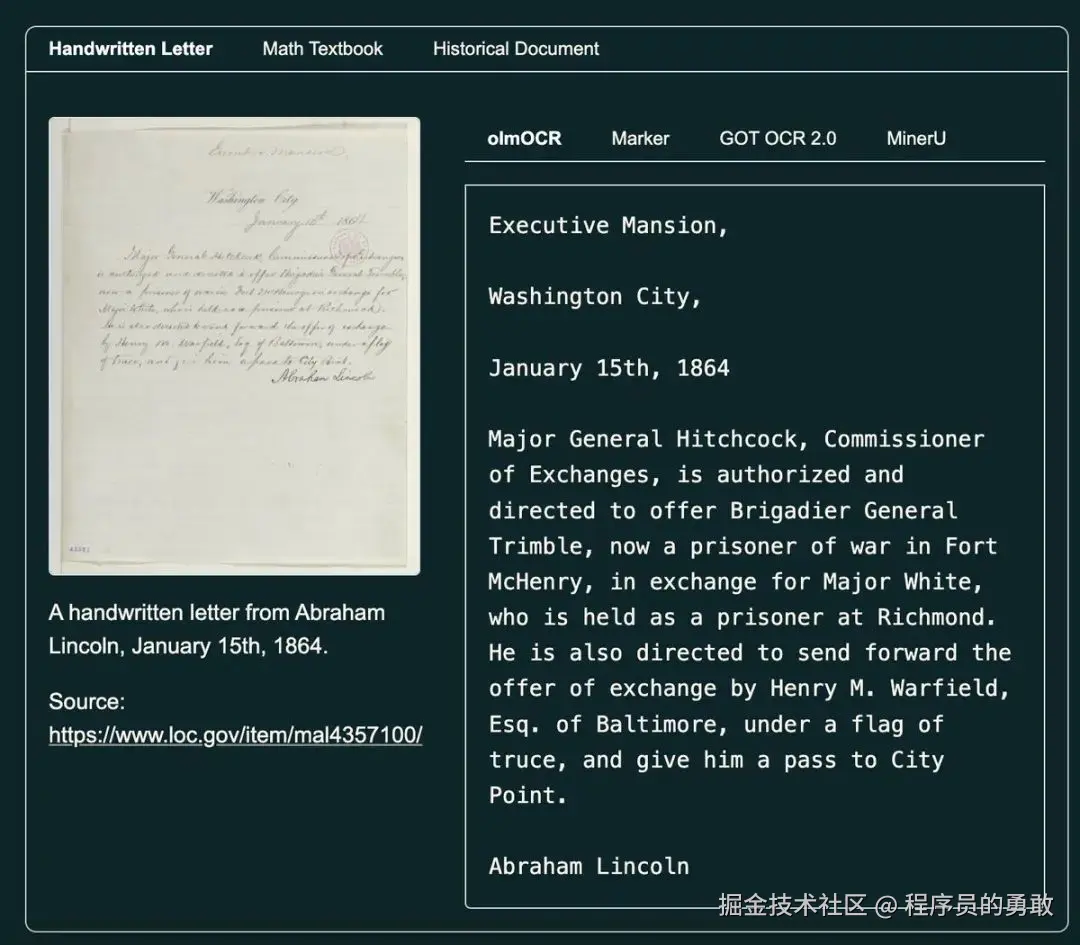 Handwritten Letter Math Textbook Historical Document
Executive Mansion,
Washington City,
January 15th 1864
Major General Hitchcock, Commissioner of Exchanges,
is authorized and directed to offer Brigadier General Trimble,
now a prisoner of war in Fort McHenry, in exchange for
Major White, who is held as a prisoner at Richmond.
He is also directed to send forward the offer of exchange
by Henry M. Warfield, Esq. of Baltimore, under a flag
of truce, and give him a pass to City Point.
Abraham Lincoln
A handwritten letter from Abraham
Lincoln, January 15th, 1864.
Source:
https://www.loc.gov/item/mal4357100/
olmOCR Marker GOT OCR 2.0 MinerU
Executive Mansion,
Washington City,
January 15th, 1864
Major General Hitchcock, Commissioner
of Exchanges, is authorized and
directed to offer Brigadier General
Trimble, now a prisoner of war in Fort
McHenry, in exchange for Major White,
who is held as a prisoner at Richmond.
He is also directed to send forward the
offer of exchange by Henry M. Warfield,
Esq. of Baltimore, under a flag of
truce, and give him a pass to City
Point.
Abraham Lincoln
掘金技术社区 @ 程序员的勇敢